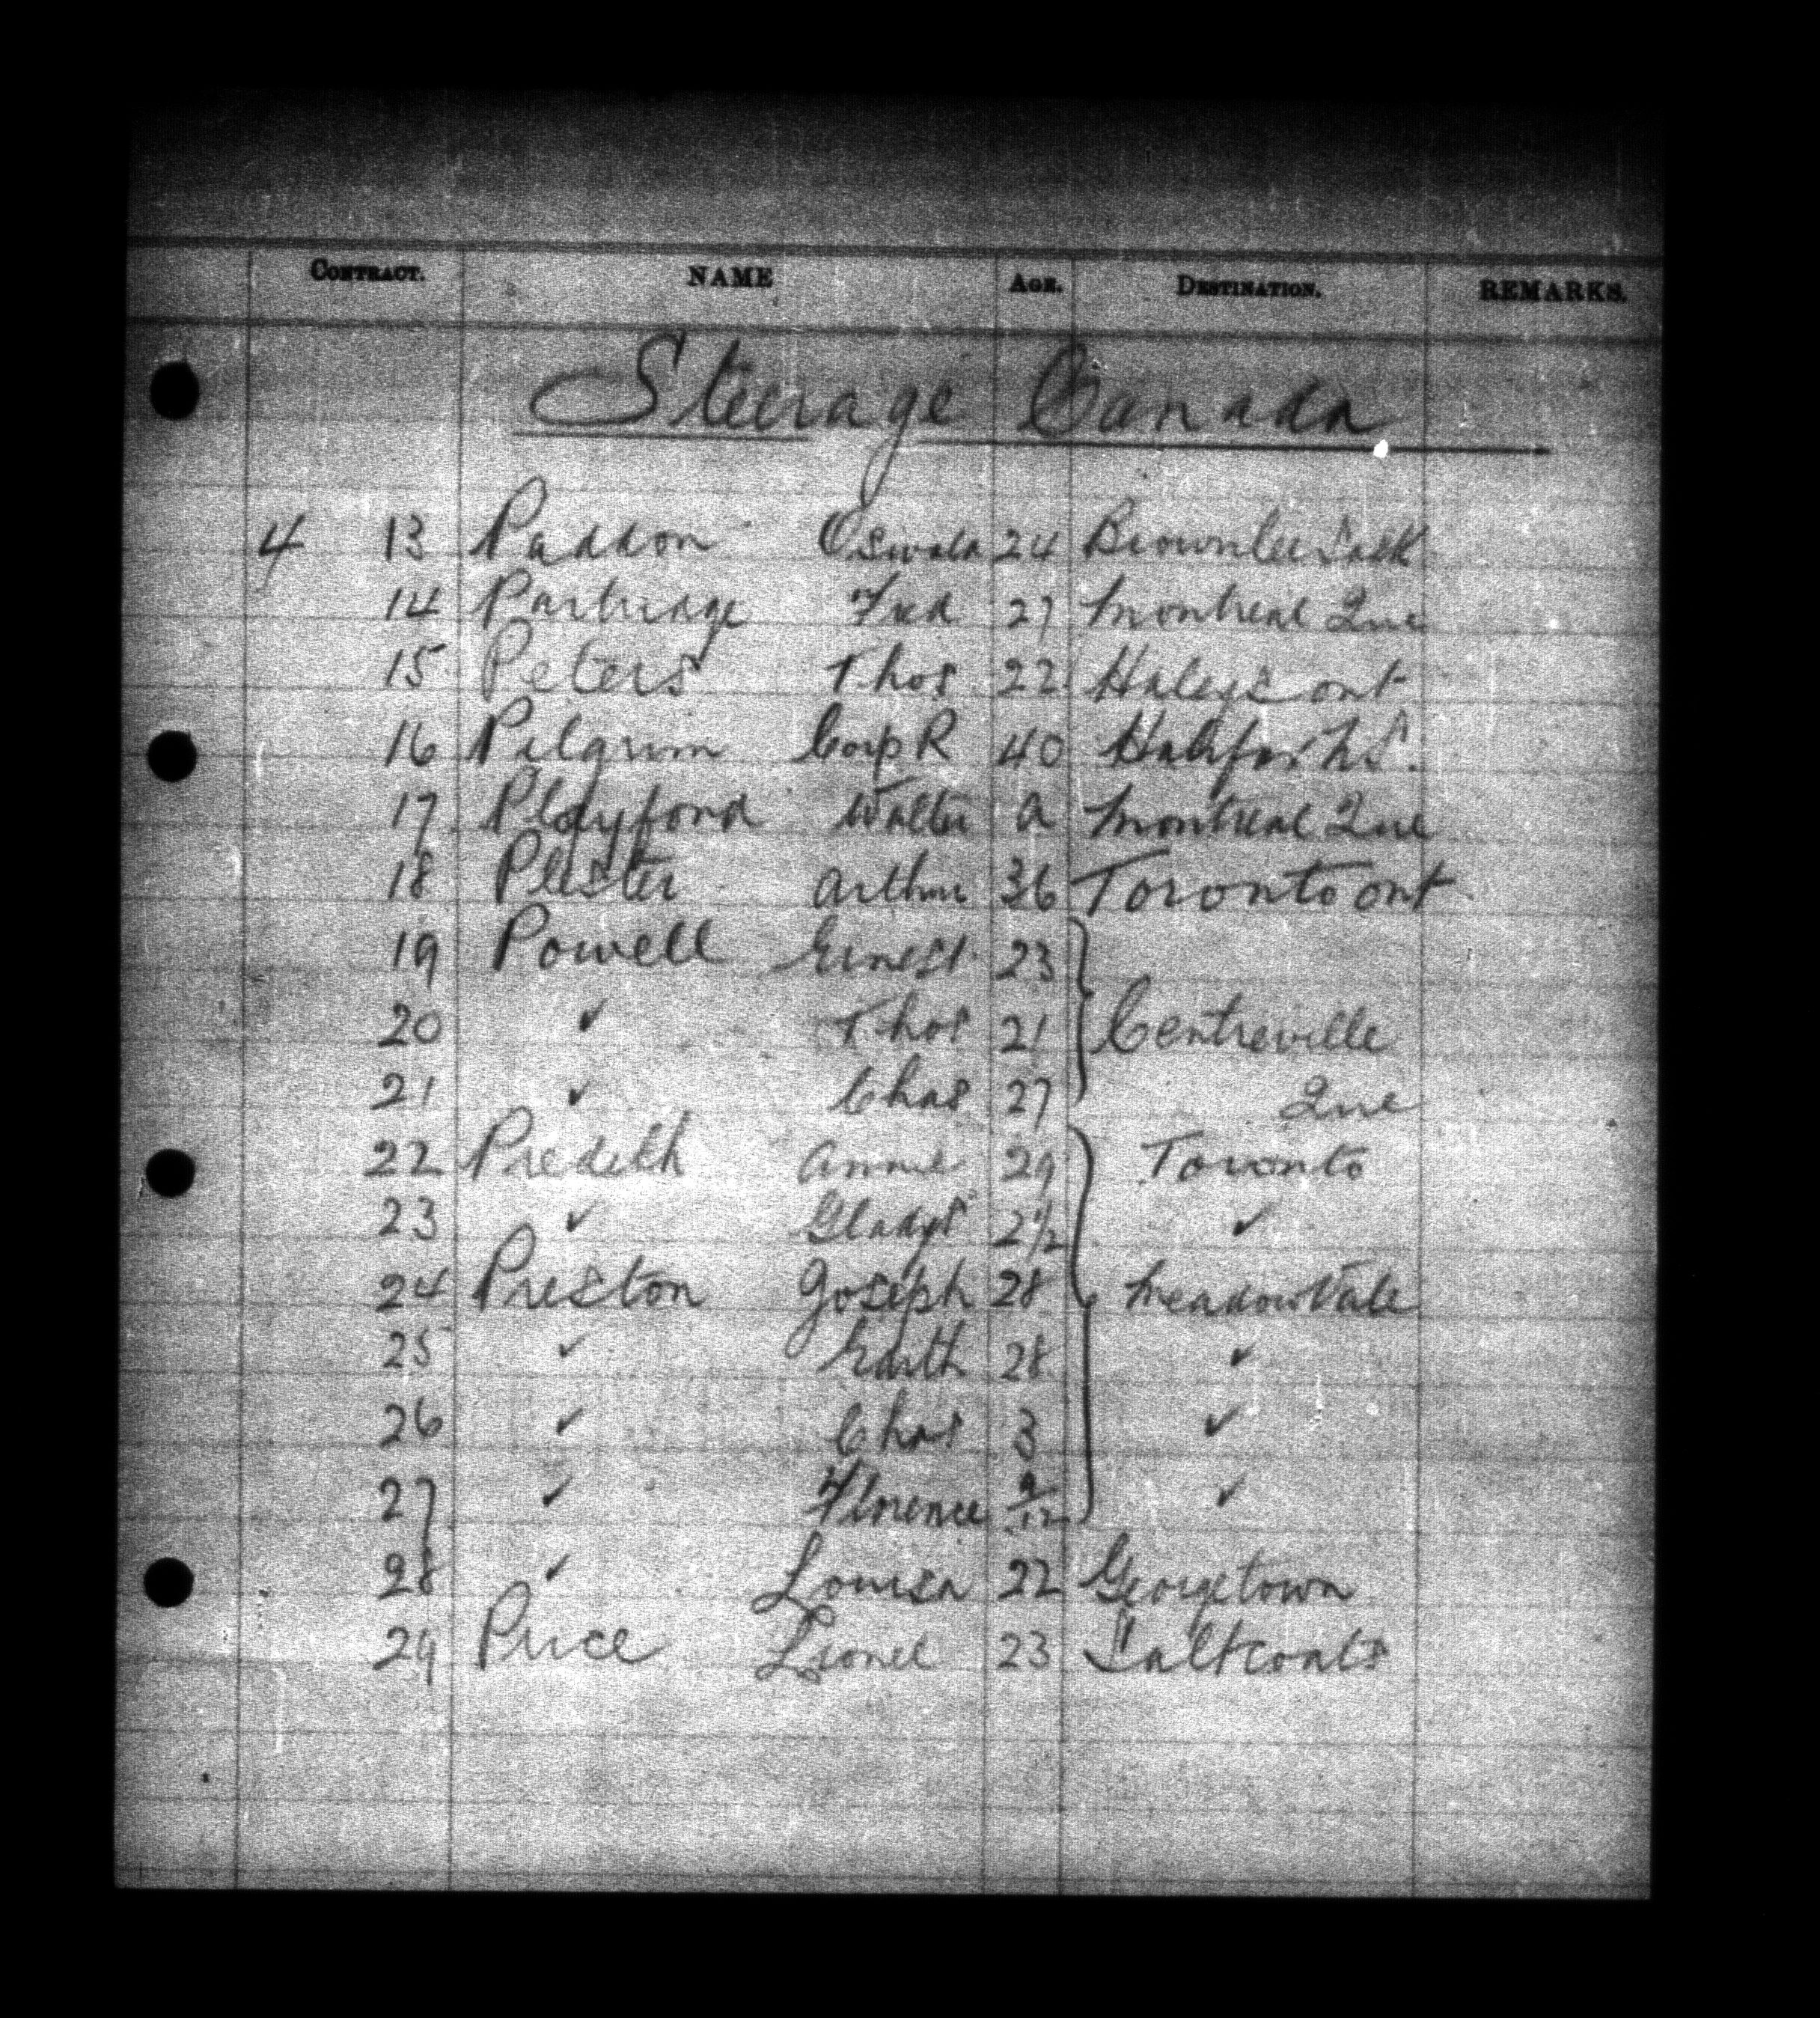 CONTRACT. NAME AGE. DESTINATION. REMARKS.
Steerage Canada
4 13 Paddon Oswald 24 Brownlee Sask
14 Partridge Fred 27 Montreal Que
15 Peters Thos 22 Haleys ont
16 Pilgrim Corp R 40 Halifax N.S.
17 Playford Walter a Montreal Que
18 Plester Arthur 36 Toronto ont
19 Powell Ernest 23
20 ✓ Thos 21 Centreville
21 ✓ Chas 27 Que
22 Annie 29 Toronto
23 ✓ Gladys 2 1/2 ✓
24 Preston Joseph 28 Meadowvale
25 ✓ Edith 28 ✓
26 ✓ Chas 3 ✓
27 ✓ Florence 9/12 ✓
28 ✓ Louisa 22 Georgetown
29 Price Lionel 23 Saltcoats